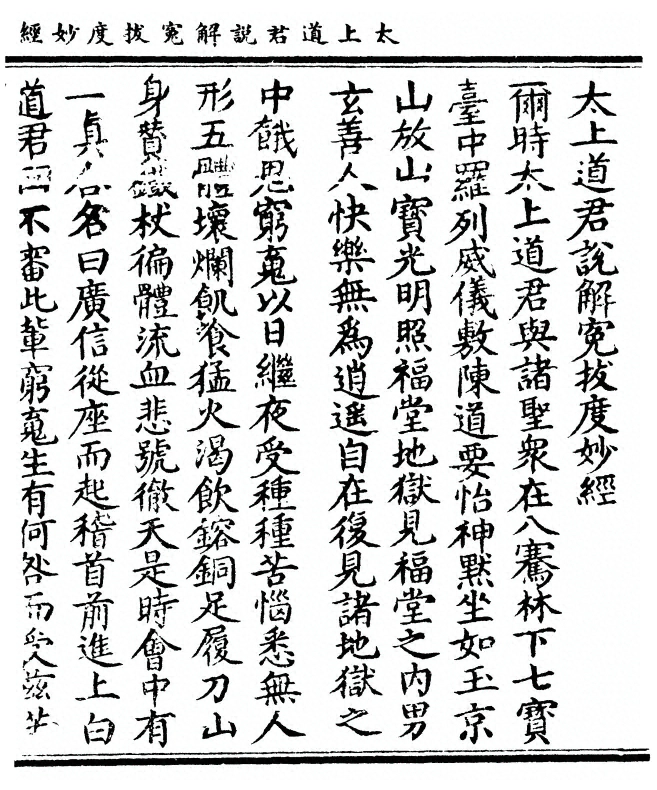 太上道君說解冤拔度妙經
太上道君說解冤拔度妙經
爾時太上道君與諸聖衆在八騫林下七寶
臺中羅列威儀敷陳道要怡神默坐如玉京
山放山寶光明照福堂地獄見福堂之内男
玄善人快樂無爲逍遥自在復見諸地獄之
中餓鬼窮䰟以日繼夜受種種苦惱悉無人
形五體壞爛飢飡猛火渴飲鎔銅足履刀山
身贊鐵杖徧體流血悲號徹天是時會中有
一真名曰廣信從座而起稽首前進上白
道君不審此輩窮䰟生有何咎而受茲苦